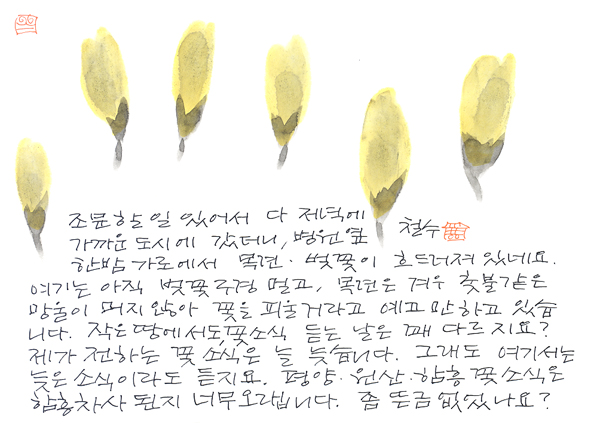 조문할 일 있어서 다 저녁에
가까운 도시에 갔더니, 병원옆
한밤 가로에서 목련·벚꽃이 흐드러져 있네요.
여기는 아직 벚꽃구경 멀고, 목련은 겨우 촛불같은
망울이 머지않아 꽃을 피울거라고 예고만하고 있습
니다. 작은땅에서도,꽃소식 듣는 날은 꽤 다르지요?
제가 전하는 꽃 소식은 늘 늦습니다. 그래도 여기서는
늦은 소식이라도 듣지요. 평양·원산·함흥 꽃소식은
함흥차사 된지 너무오랩니다. 좀 뜬금 없었나요?
철수